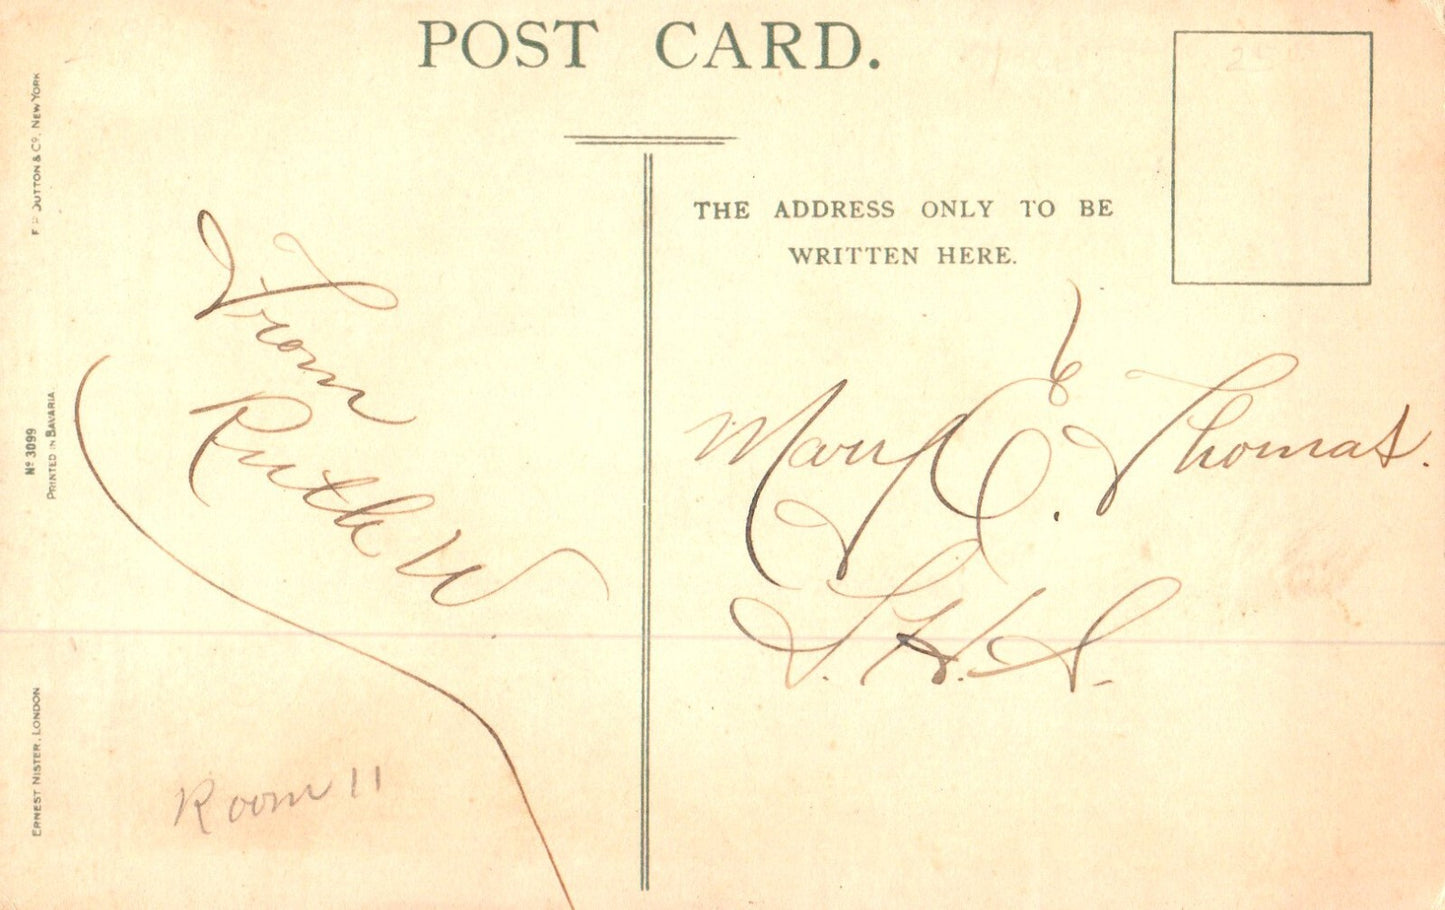 POST CARD.
THE ADDRESS ONLY TO BE
WRITTEN HERE.
From
Ruth W
Room 11
Mary E. Thomas.
DUTTON & Co. NEW YORK
No 3099
PRINTED IN BAVARIA.
ERNEST NISTER, LONDON